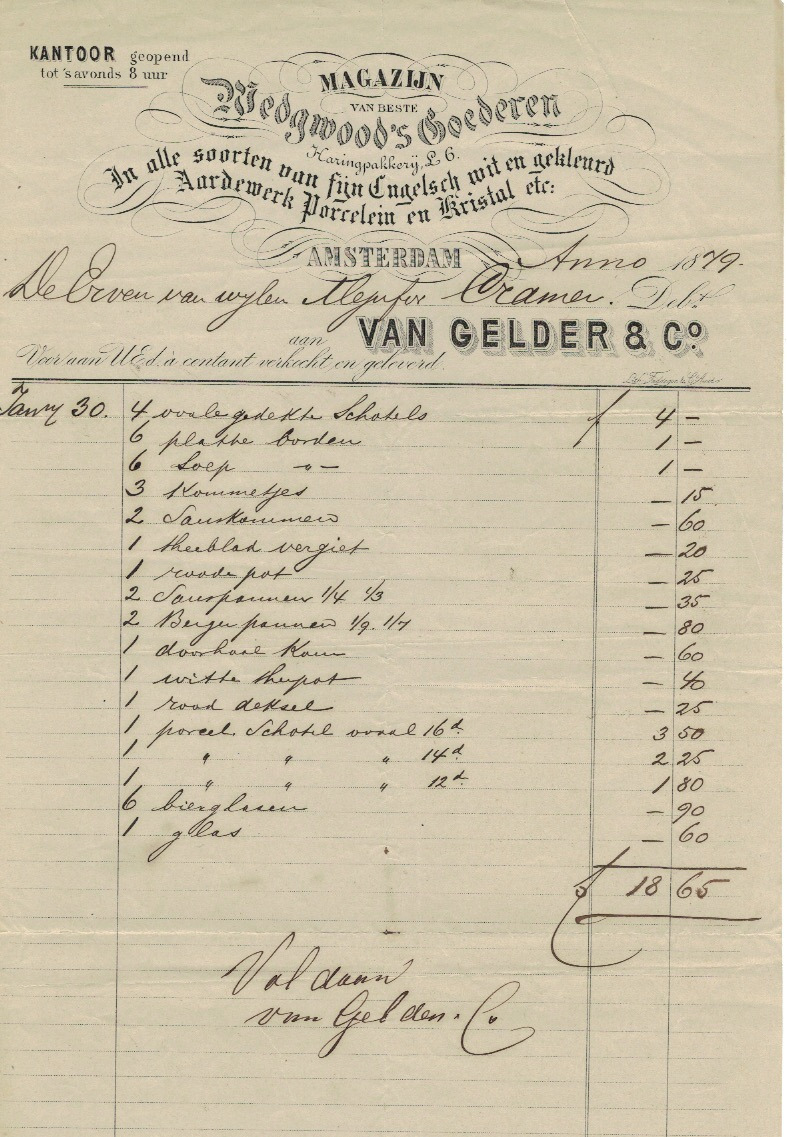 KANTOOR geopend
tot 's avonds 8 uur
MAGAZIJN
VAN BESTE
Wedgwood's Goederen
Haringpakkerij, L 6.
In alle soorten van fijn Engelsch wit en gekleurd
Aardewerk Porcelein en Kristal etc:
AMSTERDAM Anno 1879.
De Erven van wijlen Mejufvr Cramer. Debt
aan VAN GELDER & Co.
Voor aan UEd. à contant verkocht en geleverd.
Janry 30. 4 ovale gedekte Schotels f 4 –
6 platte borden 1 –
6 Soep -"- 1 –
3 Kommetjes – 15
2 Sauskommen – 60
1 theeblad vergiet – 20
1 roode pot – 25
2 Sauspannen 1/4 1/3 – 35
2 Berger pannen 1/9. 1/7 – 80
1 doorhaal Kom – 60
1 witte theepot – 40
1 rood deksel – 25
1 porcel. Schotel ovaal 16d. 3 50
1 " " " 14d. 2 25
1 " " " 12d. 1 80
6 bierglasen – 90
1 glas – 60
f 18 65
Voldaan
van Gelder. Co